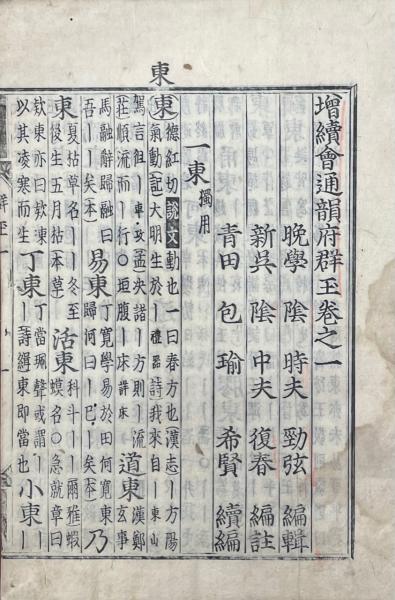 東
增續會通韻府群玉卷之一
晚學陰 時夫 勁弦 編輯
新吳陰 中夫 復春 編註
青田 包 瑜 希賢 續編
一東獨用
東德紅切說文動也一曰春方也漢志丨方陽
氣動記大明生於丨禮器詩我來自丨東山
駕言徂丨車攻孟決諸丨方則丨流
莊順流而丨行○坦腹丨床詳床 道東漢鄭玄事
馬融辭歸融曰
吾丨丨矣本 易東丁寬學易於田何寬東
歸何曰丨巳丨矣本 乃
東夏枯草名丨丨冬至
後生五月枯本草 活東科斗丨丨爾雅蝦
蟆名○急就章曰
款東亦曰欵凍
以其凌寒而生 丁東丁當珮聲或謂丨
丨詩纙東即當也 小東丨